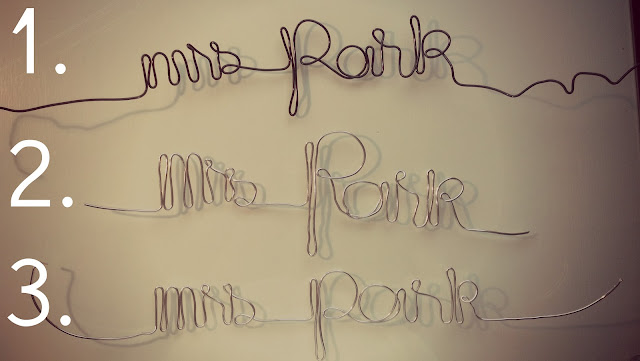 1. mrs Park
2. Mrs Park
3. mrs park